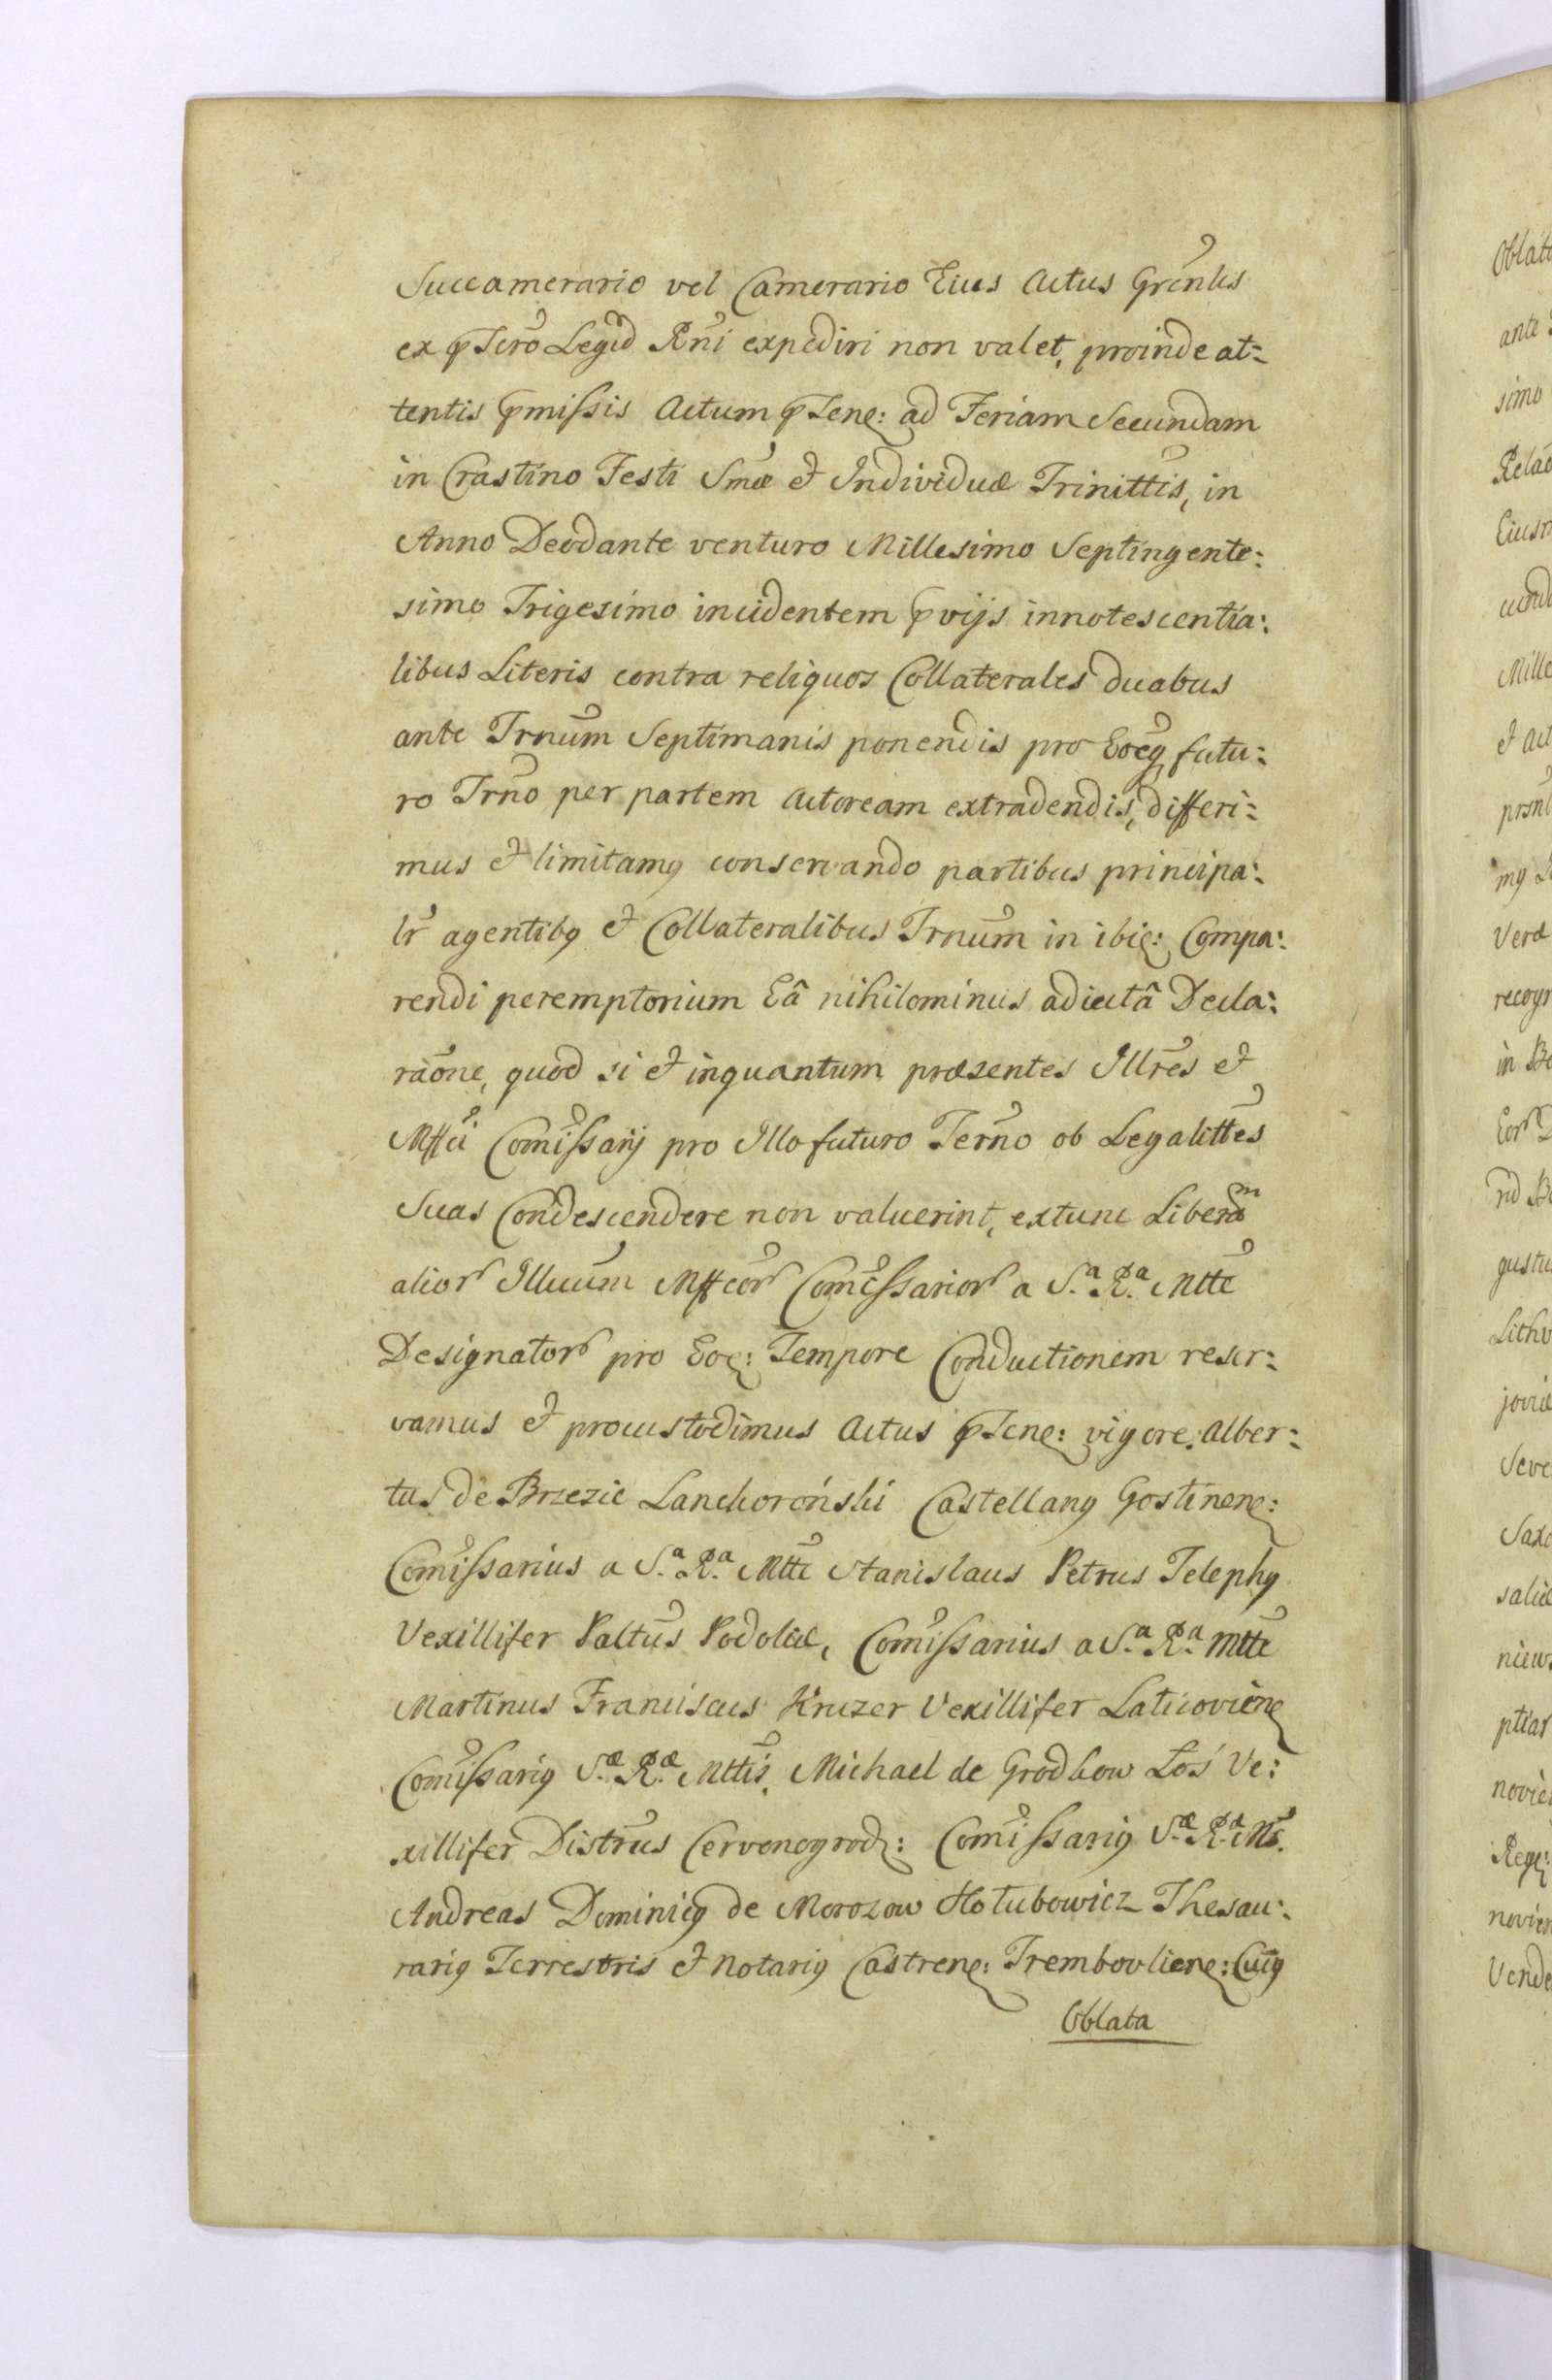 Succamerario vel Camerario Eius Actus Grãnlis
ex p̃scro Legũ Rñi expediri non valet, proinde at:
tentis p̃missis Actum p̃sen: ad Feriam Secundam
in Crastino Festi Smæ et Individuæ Trinittis, in
Anno Deodante venturo Millesimo Septingente:
simo Trigesimo incidentem p̃vijs innotescentia:
libus Literis contra reliquos Collaterales duabus
ante Trnũm Septimanis ponendis pro Eoq, futu:
ro Trño per partem Actoream extradendis, differi:
mus et limitamq conservando partibus principa:
lr̃ agentibq et Collateralibus Trnũm in ibi: Compa:
rendi peremptorium Eâ nihilominus adiectâ Decla:
raõne, quod si et inquantum præsentes Illr̃es et
Mffci Comĩssarij pro Illo futuro Term̃o ob Legalittẽs
Suas Condescendere non valuerint, extunc Liberam
alior Illũum Mffcor Comĩssarior a S.ª R.ª Mttẽ
Designator pro Eo: Tempore Conductionem reser:
vamus et procustodimus Actus p̃sen: vigore. Alber:
tus de Brzezie Lanckoroński Castellanq Gostinen:
Comĩssarius a S.ª R.ª Mttẽ Stanislaus Petrus Telephq
Vexillifer Paltũs Podoliæ, Comĩssarius a S.ª R.ª Mttẽ
Martinus Franciscus Kruzer Vexillifer Laticovien
Comĩssariq S.æ R.æ Mttĩs. Michael de Grodkow Łoś Ve:
xillifer Distrũs Czervonogrod: Comĩssariq S.æ R.æ Ms̃.
Andreas Dominicq de Morozow Hołubowicz Thesau:
rariq Terrestris et Notariq Castren: Trembovlien: Cuiq
Oblata
Oblata
ante
simo
Mille
et Act
Veræ
recogn
gustu
Lithv
Seve
Saxo
ptiar